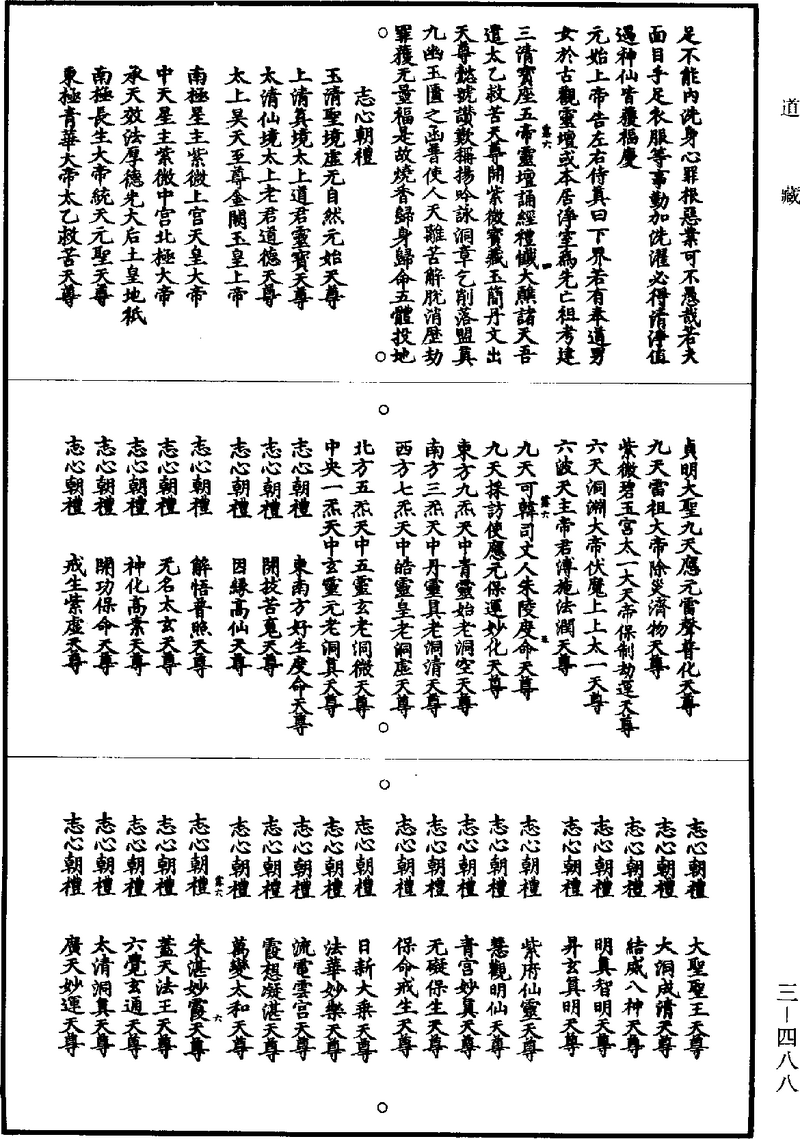 道藏
足不能內洗身心罪根惡業可不愚哉若夫
面目手足衣服等事勤加洗濯必得清淨值
遇神仙皆獲福慶
元始上帝告左右侍真曰下界若有奉道男
女於古觀靈壇或本居淨室為先亡祖考建
三清寶座五帝靈壇誦經禮懺大醮諸天吾
遣太乙救苦天尊開紫微寶藏玉簡丹文出
天尊懿號讚歎稱揚吟詠洞章乞削落盟真
九幽玉匱之函普使人天離苦解脫消歷劫
罪獲无量福是故燒香歸身歸命五體投地
志心朝禮
玉清聖境虛无自然元始天尊
上清真境太上道君靈寶天尊
太清仙境太上老君道德天尊
太上昊天至尊金闕玉皇上帝
南極星主紫微上宫天皇大帝
中天星主紫微中宫北極大帝
承天效法厚德光大后土皇地祇
南極長生大帝統天元聖天尊
東極青華大帝太乙救苦天尊
貞明大聖九天應元雷聲普化天尊
九天雷祖大帝除災濟物天尊
紫微碧玉宫太一大天帝保制劫運天尊
六天洞淵大帝伏魔上上太一天尊
六波天主帝君溥施法潤天尊
九天可韓司丈人朱陵度命天尊
九天採訪使應元保運妙化天尊
東方九炁天中青靈始老洞空天尊
南方三炁天中丹靈真老洞清天尊
西方七炁天中皓靈皇老洞虛天尊
北方五炁天中五靈玄老洞微天尊
中央一炁天中玄靈元老洞真天尊
志心朝禮 東南方好生度命天尊
志心朝禮 開技苦䰟天尊
志心朝禮 因緣高仙天尊
志心朝禮 解悟普照天尊
志心朝禮 无名太玄天尊
志心朝禮 神化高素天尊
志心朝禮 開功保命天尊
志心朝禮 戒生紫虛天尊
志心朝禮 大聖聖王天尊
志心朝禮 大洞成清天尊
志心朝禮 結威八神天尊
志心朝禮 明真智明天尊
志心朝禮 昇玄真明天尊
志心朝禮 紫府仙靈天尊
志心朝禮 慧觀明仙天尊
志心朝禮 青宫妙真天尊
志心朝禮 无礙保生天尊
志心朝禮 保命戒生天尊
志心朝禮 日新大乘天尊
志心朝禮 法華妙樂天尊
志心朝禮 流電雲宫天尊
志心朝禮 霞想凝湛天尊
志心朝禮 萬變太和天尊
志心朝禮 朱湛妙霞天尊
志心朝禮 蓋天法王天尊
志心朝禮 六覺玄通天尊
志心朝禮 太清洞真天尊
志心朝禮 廣天妙運天尊
三－四八八